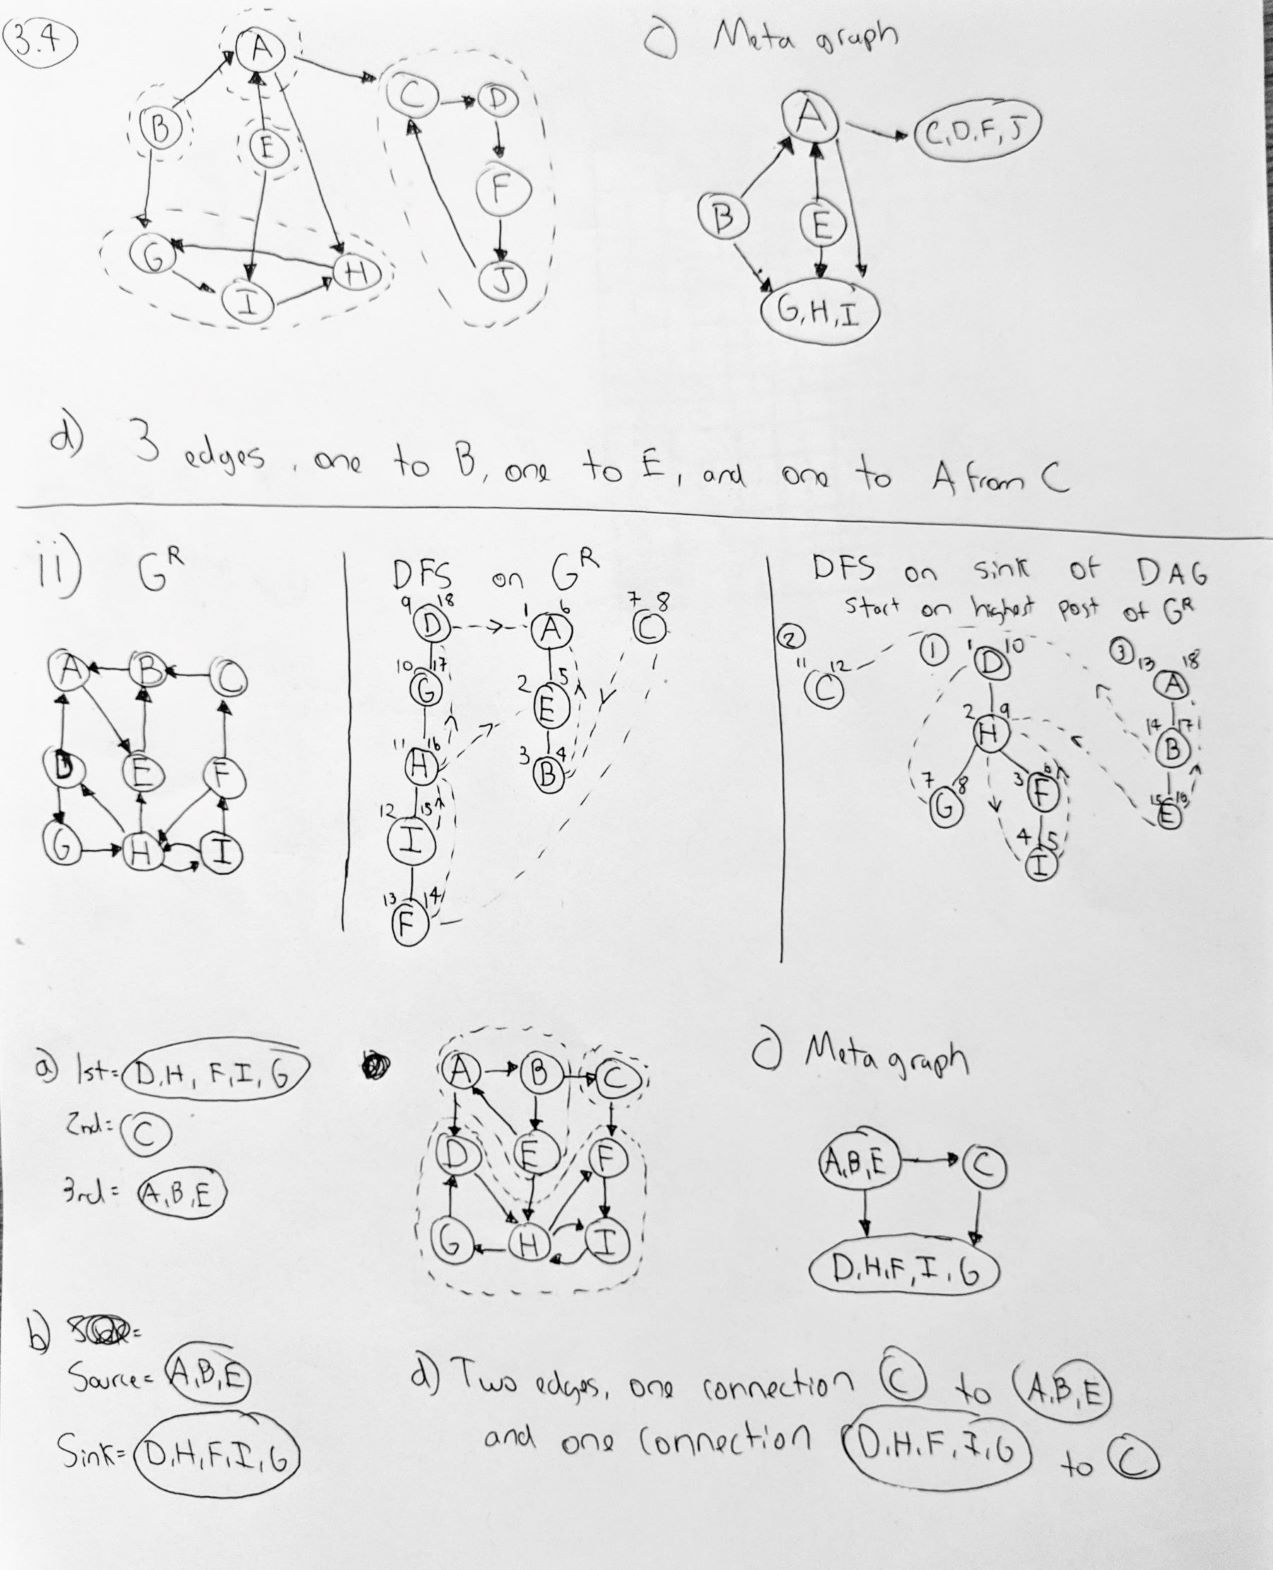 3.4
c) Meta graph
A
B
E
C
D
F
J
G
I
H
A
C,D,F,J
B
E
G,H,I
d) 3 edges, one to B, one to E, and one to A from C
ii) G^R
A B C
D E F
G H I
DFS on G^R
9 D 18
1 A 6
7 C 8
10 G 17
2 E 5
11 H 16
3 B 4
12 I 15
13 F 14
DFS on sink of DAG
start on highest post of G^R
② 11 C 12
① 1 D 10
③ 13 A 18
2 H 9
14 B 17
7 G 8
3 F 6
15 E 16
4 I 5
a) 1st= D,H,F,I,G
2nd= C
3rd= A,B,E
A B C
D E F
G H I
c) Meta graph
A,B,E
C
D,H,F,I,G
b)
Source= A,B,E
Sink= D,H,F,I,G
d) Two edges, one connection C to A,B,E
and one connection D,H,F,I,G to C